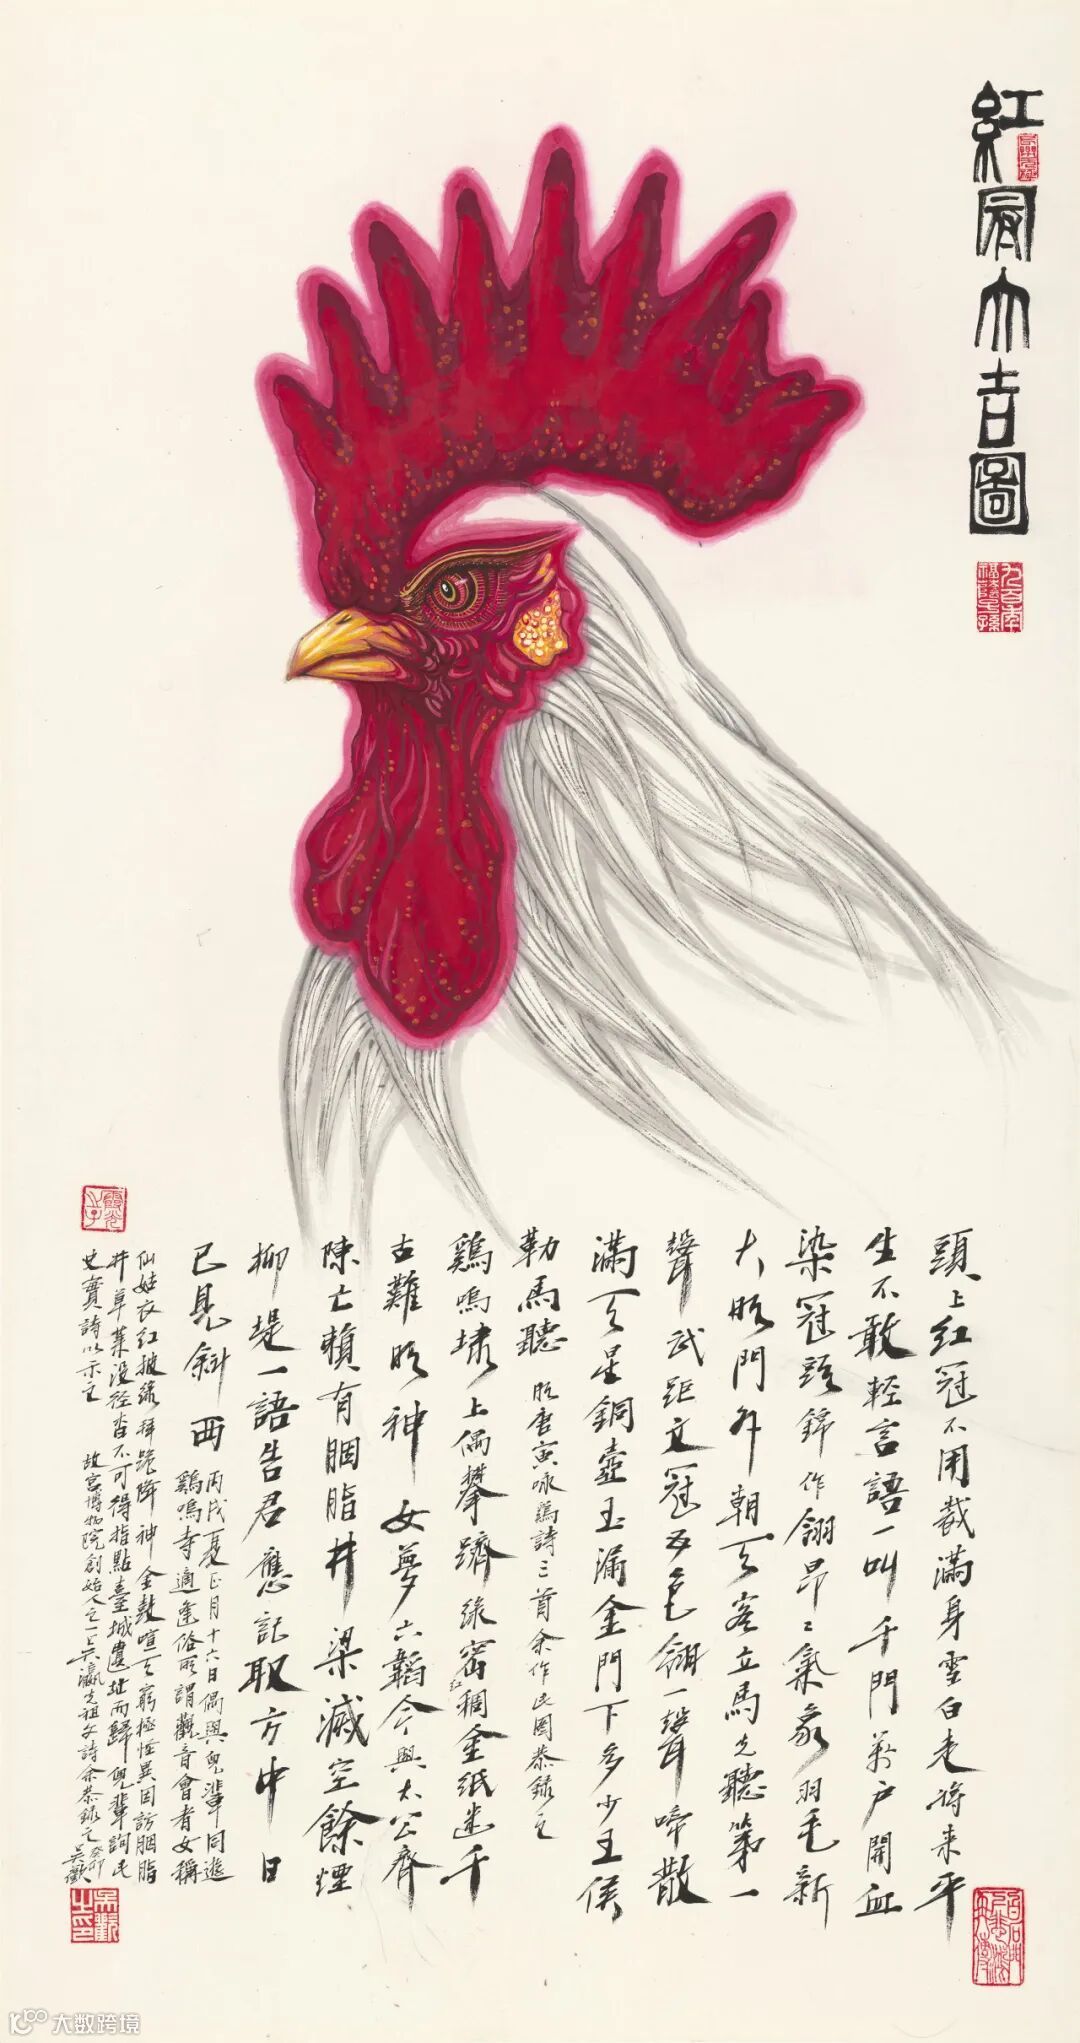 紅冠大吉圖
頭上紅冠不用裁滿身雪白走將來平
生不敢輕言語一叫千門萬户開血
染冠頭錦作翎昂〻氣象羽毛新
大明門外朝天客立馬先聽第一
聲武距文冠五色翎一聲啼散
滿天星銅壺玉漏金門下多少王侯
勒馬聽 明唐寅咏鷄詩三首余作此圖恭録之
鷄鳴埭上偶攀躋綠密紅稠金紙迷千
古難明神女夢六韜今與太公齊
陳亡賴有胭脂井梁滅空餘煙
柳堤一語告君應記取方中日
已見斜西 丙戌夏正月十六日偶與兒輩同遊
鷄鳴寺適逢俗所謂觀音會者女稱
仙姑衣紅披綠拜跪降神金鼓喧天窮極怪異因訪胭脂
井草萊没徑杳不可得指點臺城遺址而歸兒輩詢此
史實詩以示之 故宮博物院創始人之一吳瀛先祖父詩余恭録之癸卯
吳歡
大数跨境